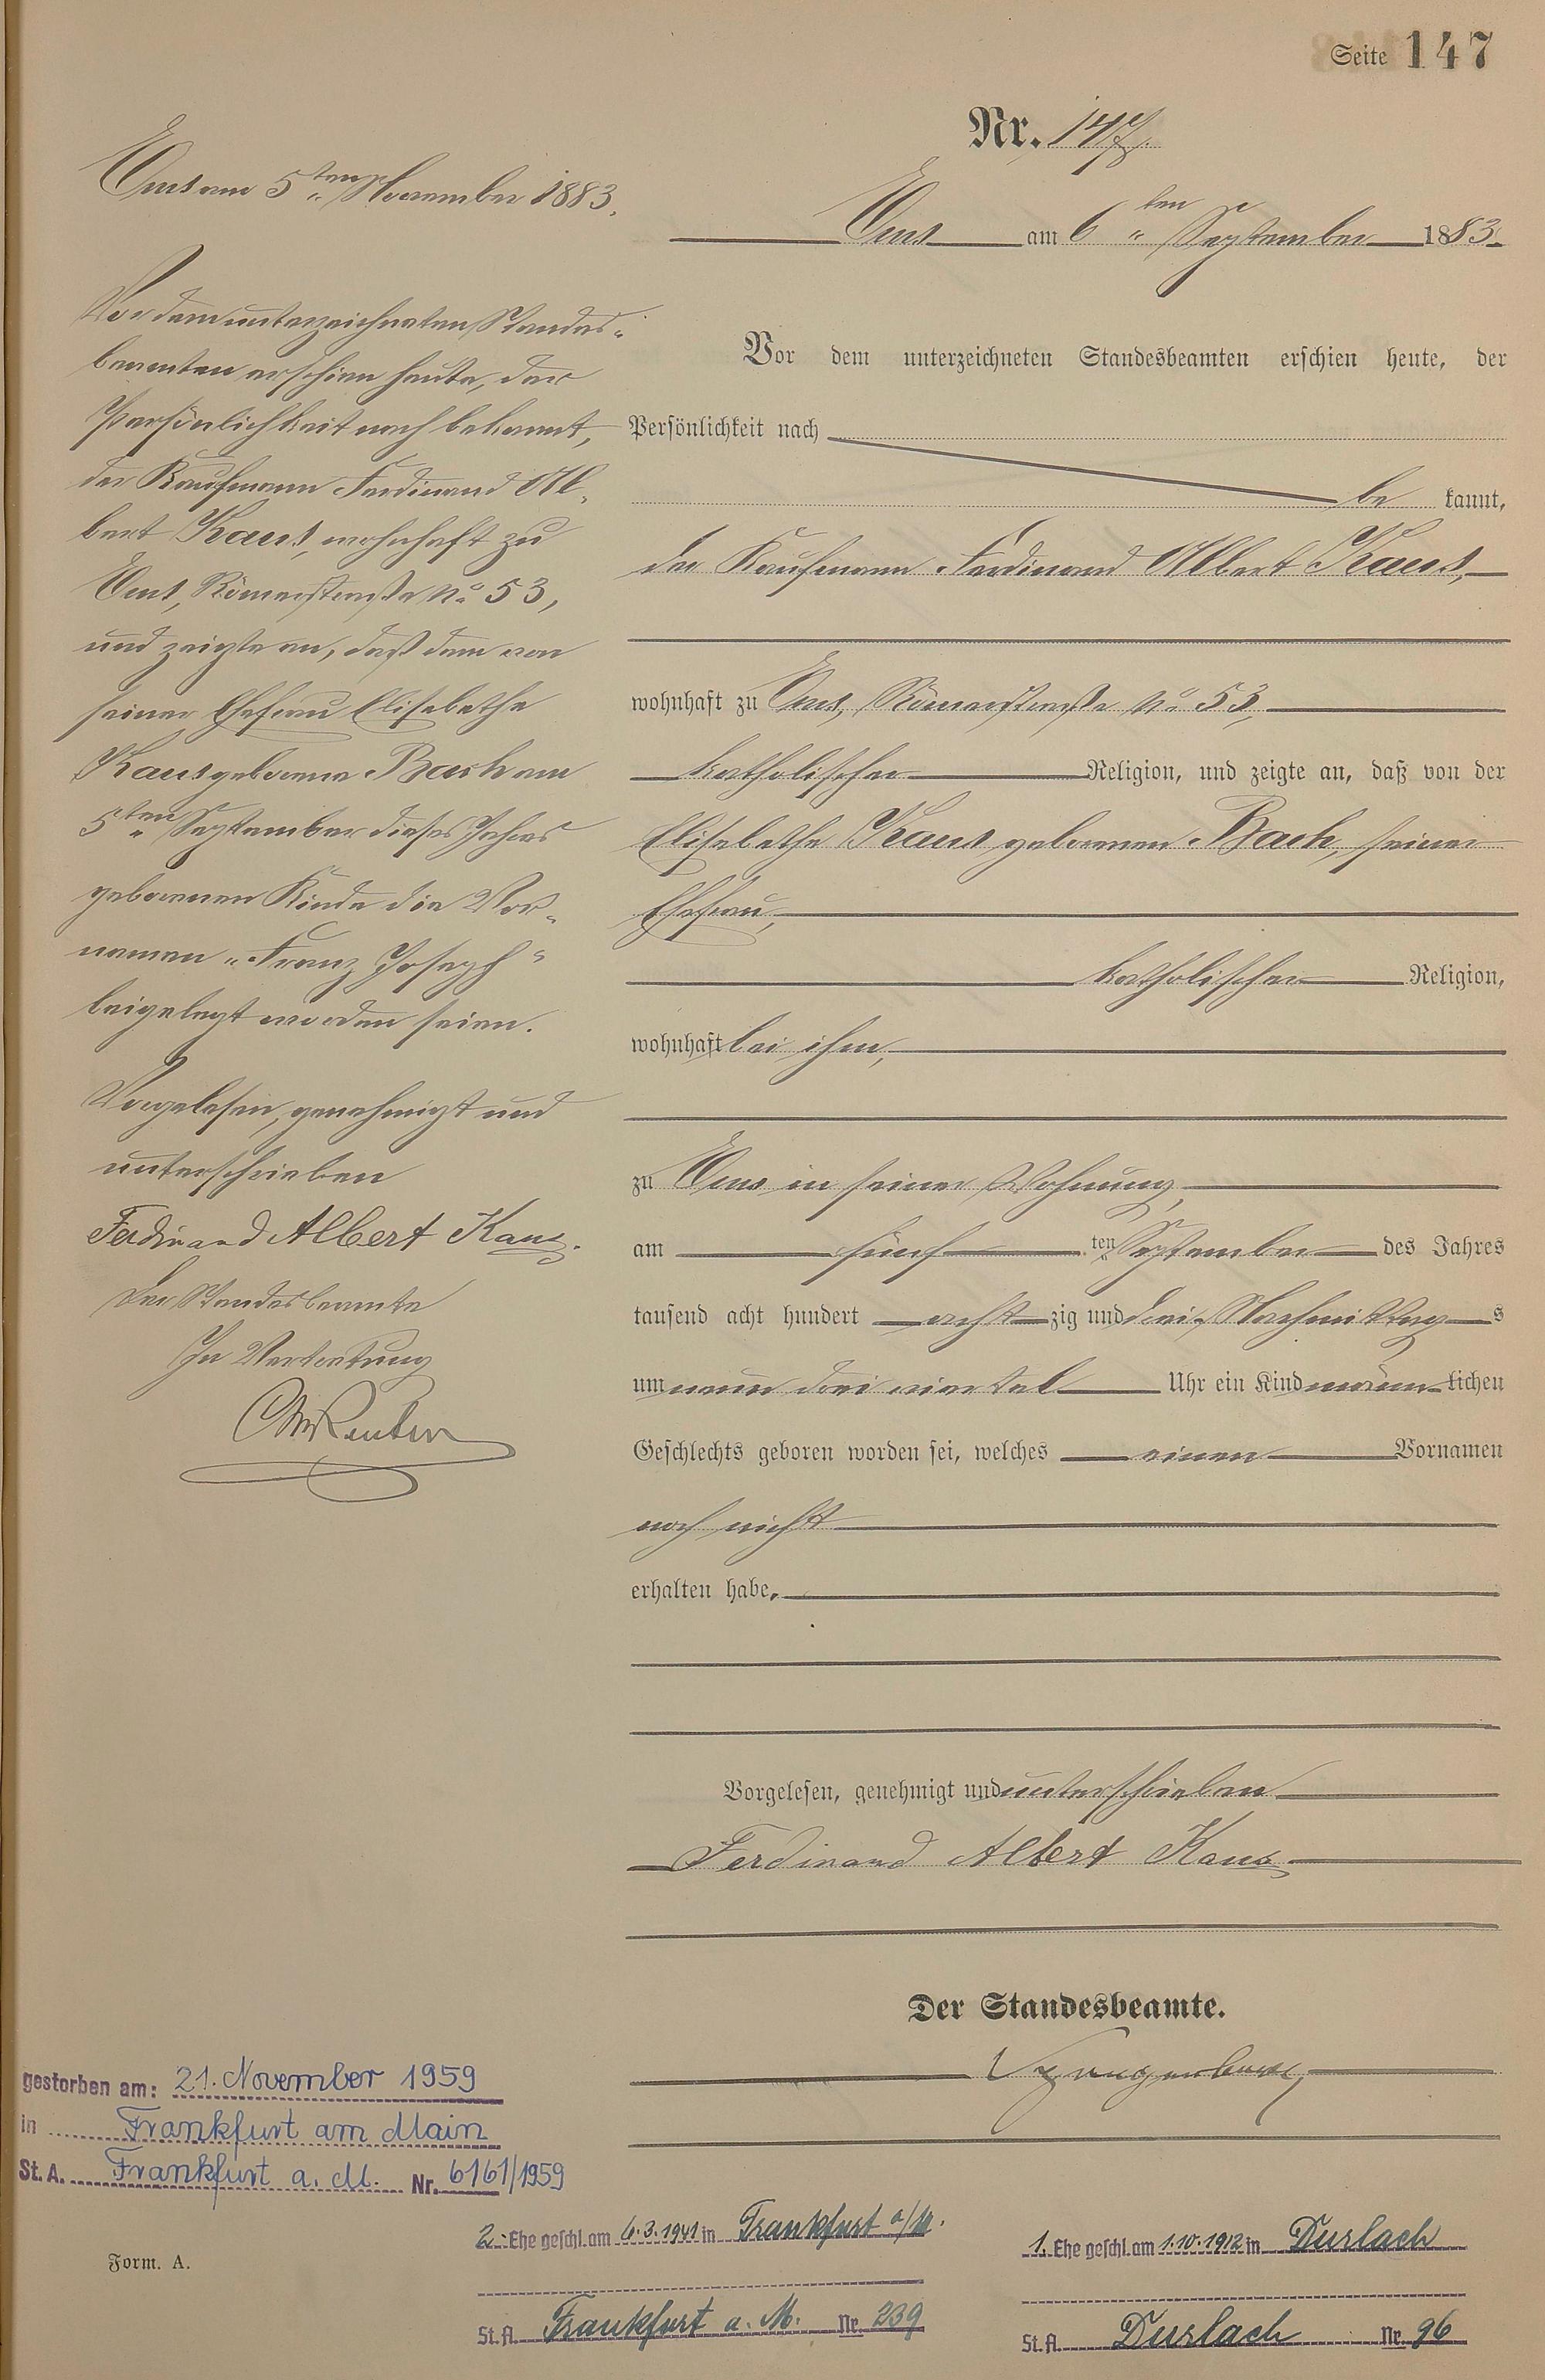 Seite 147
Nr. 147.
Ems am 6ten September 1883.
Vor dem unterzeichneten Standesbeamten erschien heute, der
Persönlichkeit nach
be kannt,
der Kaufmann Ferdinand Albert Kaus,
wohnhaft zu Ems, Römerstraße No 53,
katholischer Religion, und zeigte an, daß von der
Elisabethe Kaus geborenen Bach, seiner
Ehefrau,
katholischer Religion,
wohnhaft bei ihm,
zu Ems in seiner Wohnung,
am fünf ten September des Jahres
tausend acht hundert acht zig und drei Nachmittag s
um neun drei viertel Uhr ein Kind männ lichen
Geschlechts geboren worden sei, welches einen Vornamen
noch nicht
erhalten habe.
Vorgelesen, genehmigt und unterschrieben
Ferdinand Albert Kaus
Der Standesbeamte.
Ems am 5ten November 1883.
Vor dem unterzeichneten Standes-
beamten erschien heute, der
Persönlichkeit nach bekannt,
der Kaufmann Ferdinand Al-
bert Kaus, wohnhaft zu
Ems, Römerstraße No 53,
und zeigte an, daß dem von
seiner Ehefrau Elisabethe
Kaus geborene Bach am
5ten September dieses Jahres
geborenen Kinde die Vor-
namen "Franz Joseph"
beigelegt worden seien.
Vorgelesen, genehmigt und
unterschrieben
Ferdinand Albert Kaus.
Der Standesbeamte
In Vertretung
gestorben am: 21. November 1959
in Frankfurt am Main
St. A. Frankfurt a. M. Nr. 6161/1959
2. Ehe geschl. am 6.3.1941 in Frankfurt a/M.
St. A. Frankfurt a. M. Nr. 239
1. Ehe geschl. am 1.10.1912 in Durlach
St. A. Durlach Nr. 96
Form. A.